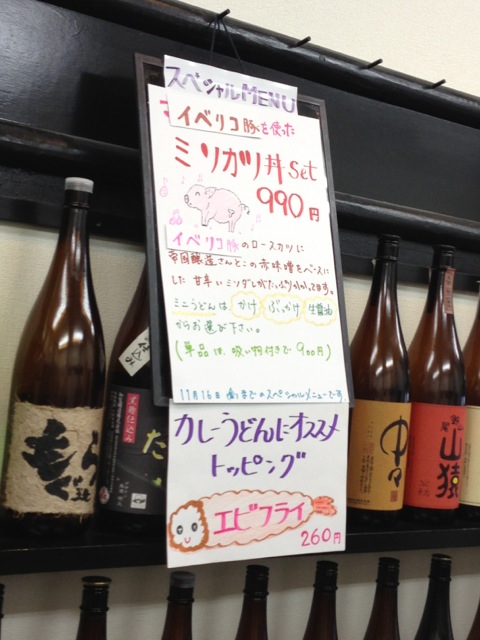 スペシャルMENU
イベリコ豚を使った
ミソカツ丼set
990円
イベリコ豚のロースカツに
さんとこの赤味噌をベースに
した甘辛いミソダレがたっぷりかかってます。
ミニうどんは かけ ぶっかけ 生醤油
からお選び下さい。
(単品は、吸い物付きで900円)
11月16日(金)までのスペシャルメニューです
カレーうどんにオススメ
トッピング
エビフライ
260円
もぐら
黒麹仕込み
た
中々
山猿